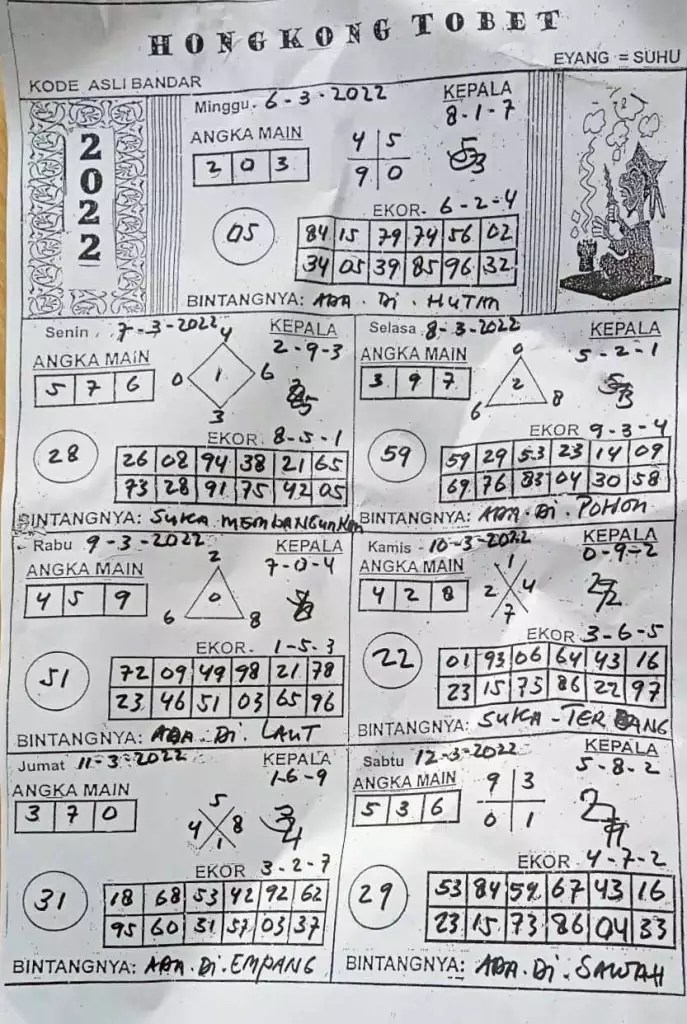 HONGKONG TOBET
EYANG = SUHU
KODE ASLI BANDAR
2022
Minggu. 6-3-2022
KEPALA
8-1-7
ANGKA MAIN
2 0 3
4 5
9 0
53
EKOR- 6-2-4
05
84 15 79 74 56 02
34 05 39 85 96 32
BINTANGNYA: ADA. Di. HUTAN
Senin. 7-3-2022
KEPALA
2-9-3
ANGKA MAIN
5 7 6
4
0 1 6
3
EKOR. 8-5-1
28
26 08 94 38 21 65
73 28 91 75 42 05
BINTANGNYA: SUKA MEMBANGUNKAN
Selasa 8-3-2022
KEPALA
5-2-1
ANGKA MAIN
3 9 7
0
2
6 8
EKOR 9-3-4
59
59 29 53 23 14 09
69 76 83 04 30 58
BINTANGNYA: ADA. Di. POHON
Rabu 9-3-2022
KEPALA
7-0-4
ANGKA MAIN
4 5 9
2
0
6 8
EKOR- 1-5-3
51
72 09 49 98 21 78
23 46 51 03 65 96
BINTANGNYA: ADA. Di. LAUT
Kamis - 10-3-2022
KEPALA
0-9-2
ANGKA MAIN
4 2 8
1
2 4
7
EKOR 3-6-5
22
01 93 06 64 43 16
23 15 75 86 22 97
BINTANGNYA: SUKA-TERBANG
Jumat 11-3-2022
KEPALA
1-6-9
ANGKA MAIN
3 7 0
5
4 8
1
34
EKOR 3-2-7
31
18 68 53 42 92 62
95 60 31 57 03 37
BINTANGNYA: ADA. Di. EMPANG
Sabtu 12-3-2022
KEPALA
5-8-2
ANGKA MAIN
5 3 6
9 3
0 1
EKOR - 4-7-2
29
53 84 59 67 43 16
23 15 73 86 04 33
BINTANGNYA: ADA. Di. SAWAH